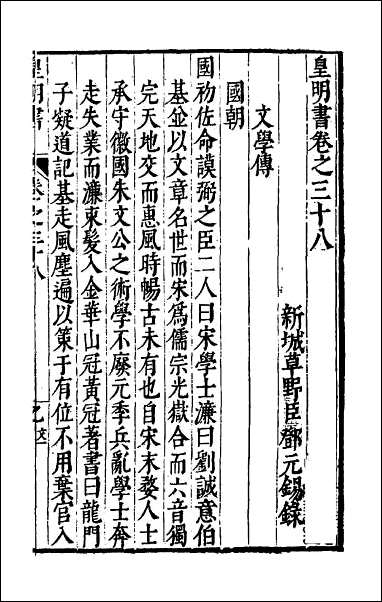 皇明書卷之三十八
新城草野臣鄧元錫錄
文學傳
國朝
國初佐命謨弼之臣二人曰宋學士濂曰劉誠意伯
基並以文章名世而宋爲儒宗光嶽合而六音獨
完天地交而惠風時暢古未有也自宋末婺人士
承守徽國朱文公之術學不廢元季兵亂學士奔
走失業而濂束髮入金華山冠黃冠著書曰龍門
子疑道記基走風塵遍以策于有位不用棄官入
皇明書
卷之三十八